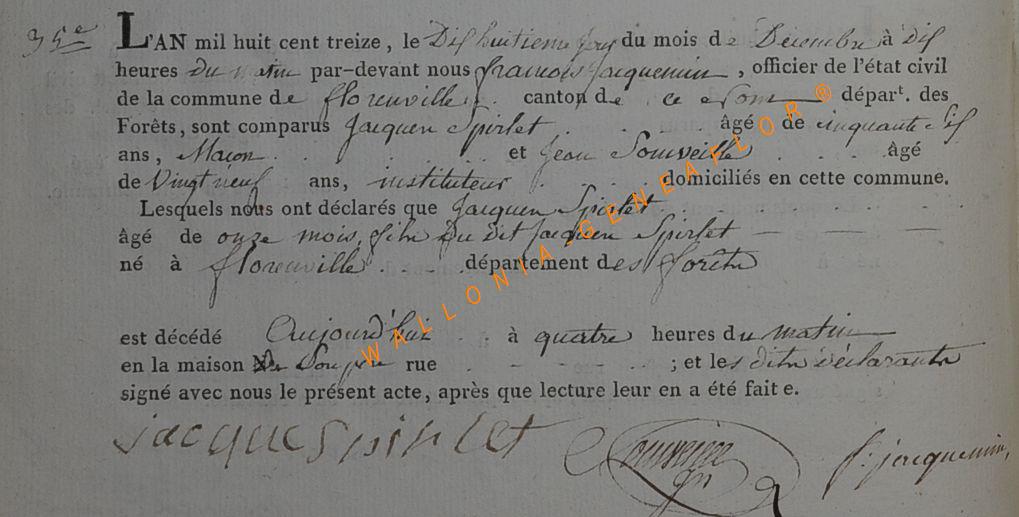 35e L'AN mil huit cent treize, le Dix huitieme jour du mois de Decembre à dix
heures du matin par-devant nous francois jacquemin, officier de l'état civil
de la commune de florenville canton de ce nom départ. des
Forêts, sont comparus Jacques Spirlet âgé de cinquante six
ans, Macon et Jean Sonveille âgé
de Vingt neuf ans, instituteur domiciliés en cette commune.
Lesquels nous ont déclarés que Jacques Spirlet
âgé de onze mois, fils du dit Jacques Spirlet
né à florenville département des forêts
est décédé Aujourd'hui à quatre heures du matin
en la maison de Son père rue ; et les dits déclarants
signé avec nous le présent acte, après que lecture leur en a été faite.
jacque Spirlet f. jacquemin,
WALLONIA GENEAFLOR ®